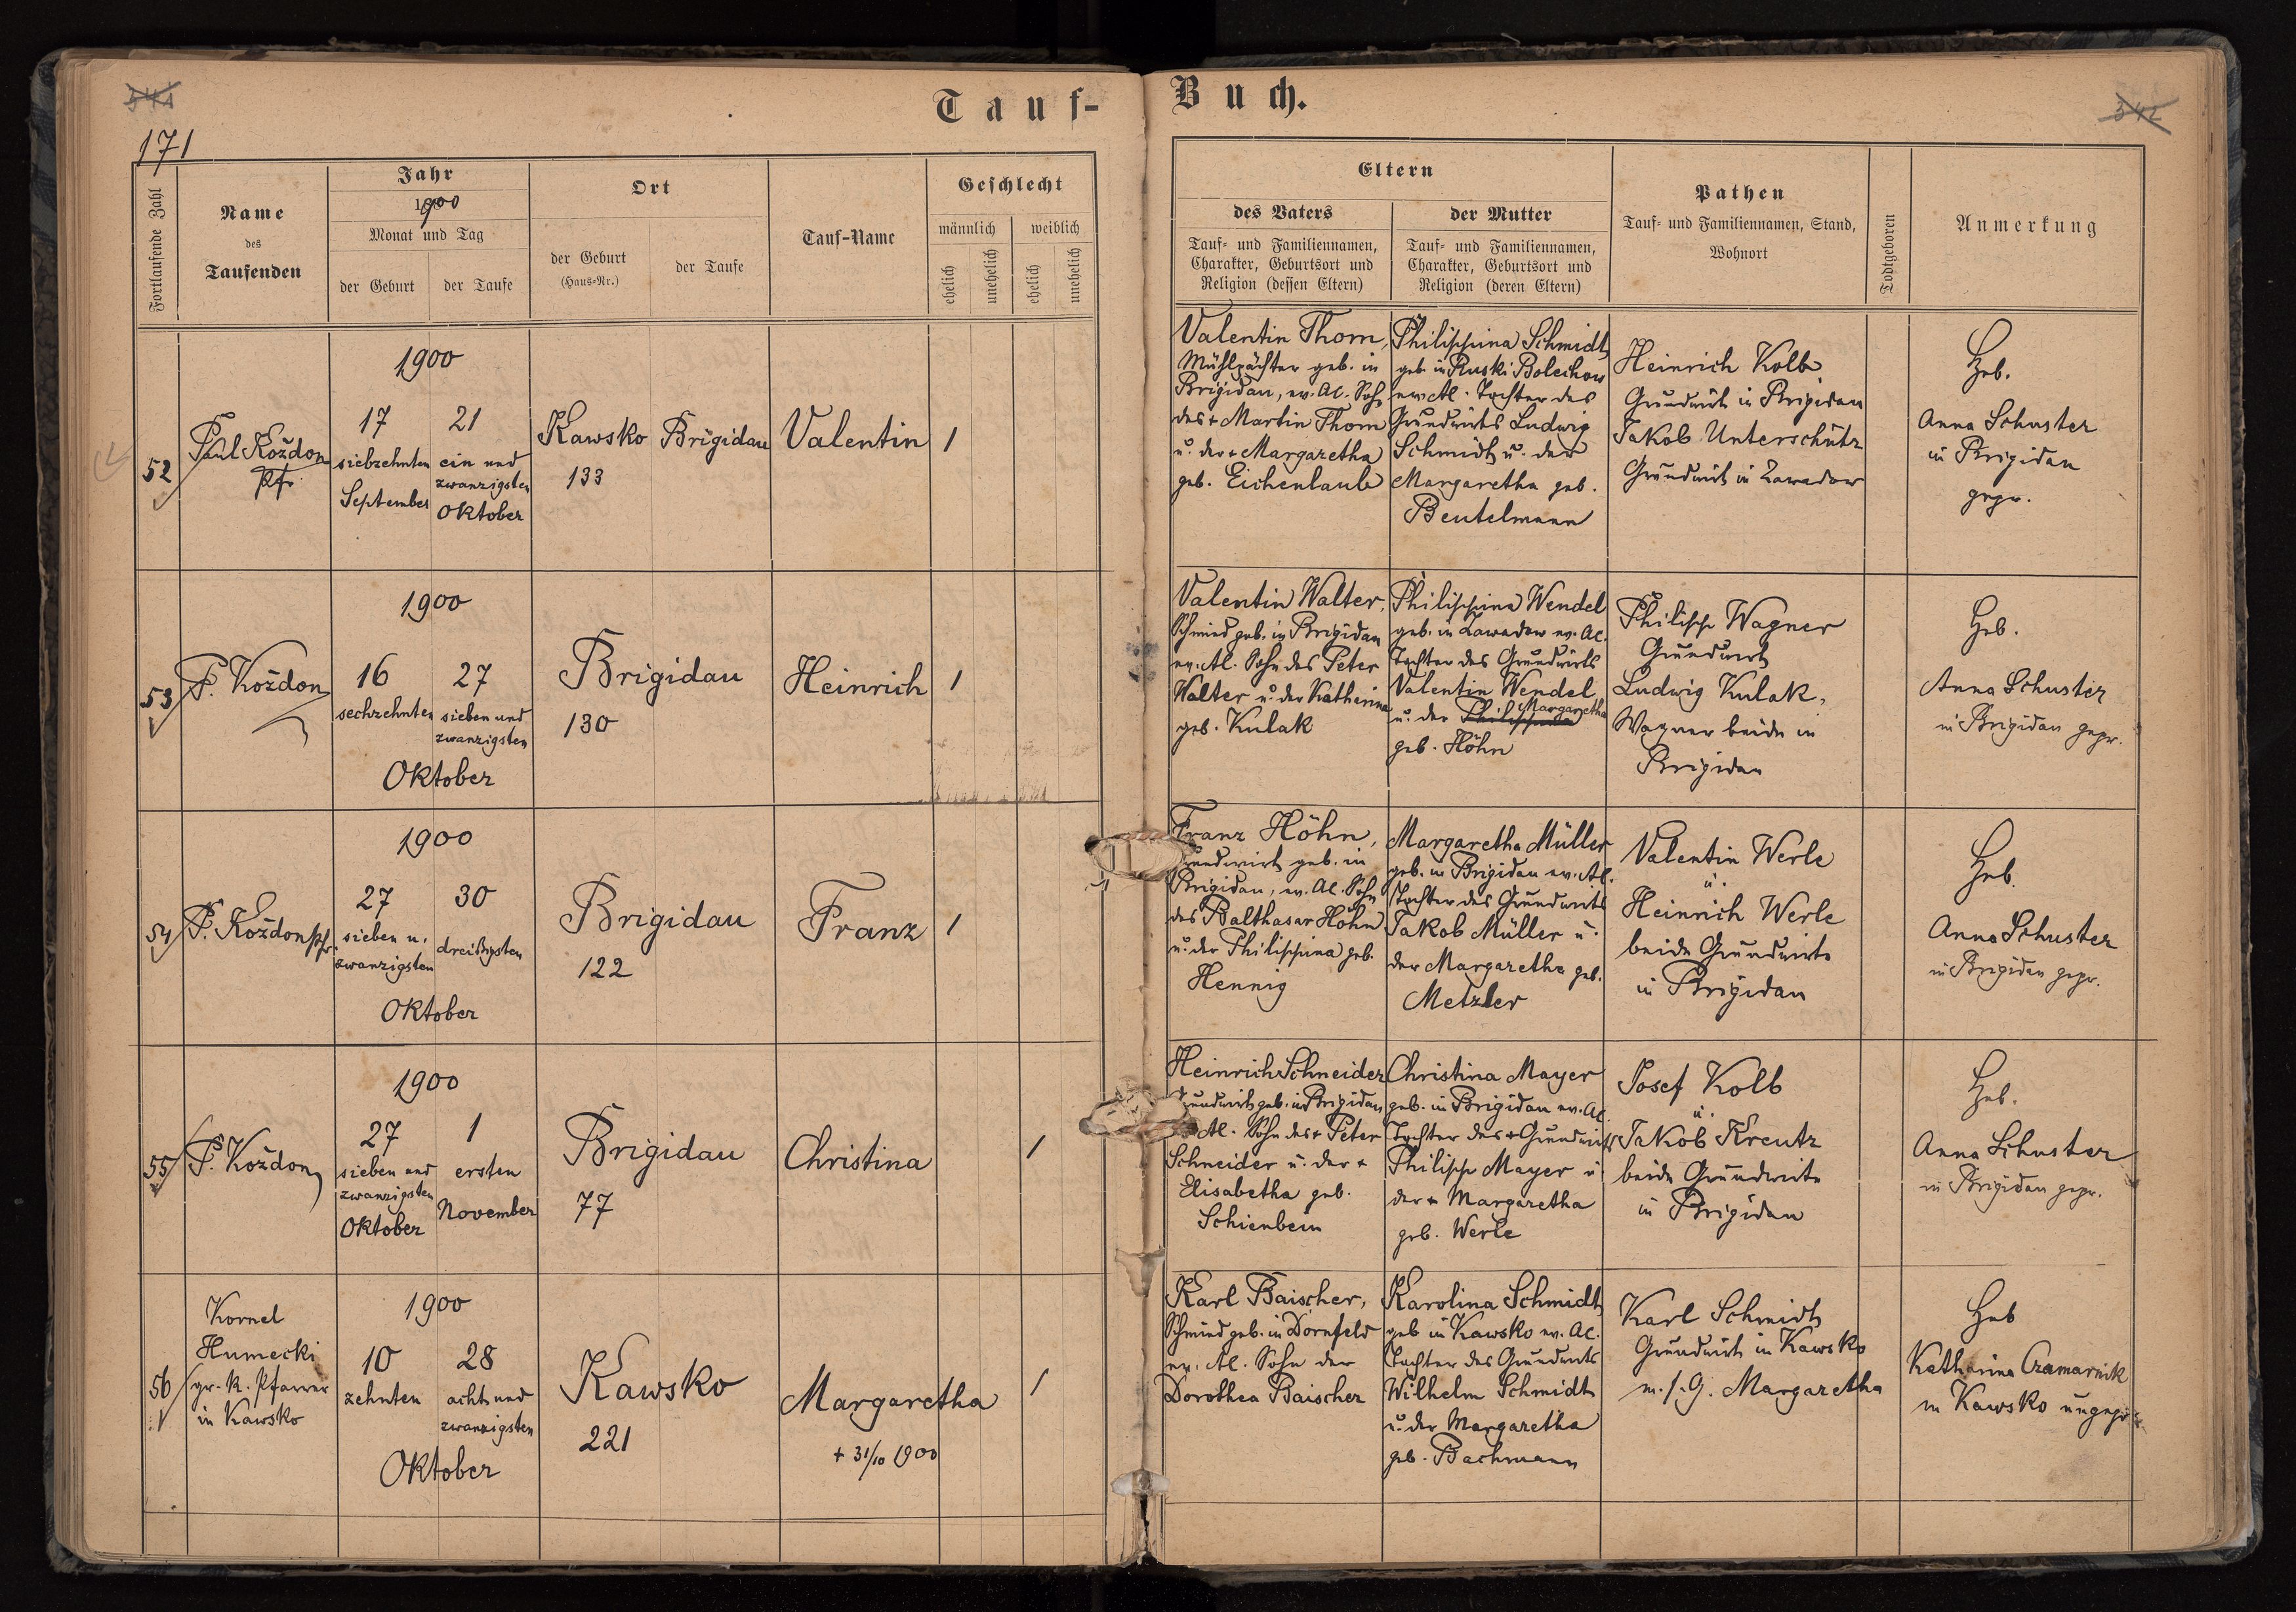 171
Tauf-
Buch.
Fortlaufende Zahl
Name
des
Taufenden
Jahr
1900
Monat und Tag
der Geburt
der Taufe
Ort
der Geburt
(Haus-Nr.)
der Taufe
Tauf-Name
Geschlecht
männlich
weiblich
ehelich
unehelich
ehelich
unehelich
Eltern
des Vaters
Tauf- und Familiennamen,
Charakter, Geburtsort und
Religion (dessen Eltern)
der Mutter
Tauf- und Familiennamen,
Charakter, Geburtsort und
Religion (deren Eltern)
Pathen
Tauf- und Familiennamen, Stand,
Wohnort
Todtgeboren
Anmerkung
52
Paul Koždon
Pfr
1900
17
siebzehnten
September
21
ein und
zwanzigsten
Oktober
Kawsko
133
Brigidau
Valentin
1
Valentin Thom,
Mühlpächter geb. in
Brigidau, ev. A.C. Sohn
des + Martin Thom
u. der + Margaretha
geb. Eichenlaub
Philippina Schmidt
geb. in Ruski Bolechow
ev. A.C. Tochter des
Grundwirts Ludwig
Schmidt u. der
Margaretha geb.
Beutelmann
Heinrich Kolb
Grundwirt in Brigidau
Jakob Unterschütz
Grundwirt in Zawadow
Heb.
Anna Schuster
in Brigidau
gepr.
53
P. Koždon
1900
16
sechzehnten
27
sieben und
zwanzigsten
Oktober
Brigidau
130
Heinrich
1
Valentin Walter,
Schmied geb. in Brigidau
ev. A.C. Sohn des Peter
Walter u. der Katharina
geb. Kulak
Philippina Wendel
geb. in Zawadow ev. A.C.
Tochter des Grundwirts
Valentin Wendel
u. der Philippina Margaretha
geb. Höhn
Philipp Wagner
Grundwirt
Ludwig Kulak,
Wagner beide in
Brigidau
Heb.
Anna Schuster
in Brigidau gepr.
54
P. Koždon pfr
1900
27
sieben u.
zwanzigsten
30
dreißigsten
Oktober
Brigidau
122
Franz
1
Franz Höhn,
Grundwirt geb. in
Brigidau, ev. A.C. Sohn
des Balthasar Höhn
u. der Philippina geb.
Hennig
Margaretha Müller
geb. in Brigidau ev. A.C.
Tochter des Grundwirts
Jakob Müller u.
der Margaretha geb.
Metzler
Valentin Werle
u.
Heinrich Werle
beide Grundwirte
in Brigidau
Heb.
Anna Schuster
in Brigidau gepr.
55
P. Koždon
1900
27
sieben und
zwanzigsten
Oktober
1
ersten
November
Brigidau
77
Christina
1
Heinrich Schneider
Grundwirt geb. in Brigidau
A.C. Sohn des + Peter
Schneider u. der +
Elisabetha geb.
Schienbein
Christina Mayer
geb. in Brigidau ev. A.C.
Tochter des + Grundwirts
Philipp Mayer u.
der + Margaretha
geb. Werle
Josef Kolb
u.
Jakob Kreutz
beide Grundwirte
in Brigidau
Heb.
Anna Schuster
in Brigidau gepr.
56
Kornel
Humecki
gr. k. Pfarrer
in Kawsko
1900
10
zehnten
28
acht und
zwanzigsten
Oktober
Kawsko
221
Margaretha
+ 31/10 900
1
Karl Baischer,
Schmied geb. in Dornfeld
ev. A.C. Sohn der
Dorothea Baischer
Karolina Schmidt
geb in Kawsko ev. A.C.
Tochter des Grundwirts
Wilhelm Schmidt
u. der Margaretha
geb. Bachmann
Karl Schmidt
Grundwirt in Kawsko
m. s. G. Margaretha
Heb
Katharina Czamarnik
in Kawsko ungepr.